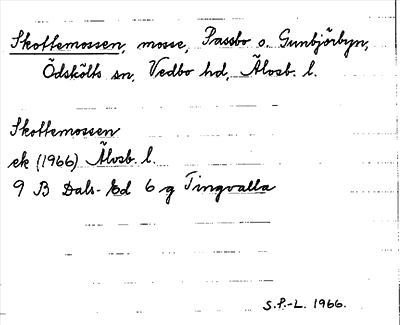 Skottemossen, mosse, Passbo o. Gunbjörbyn,
Ödskölts sn, Vedbo hd, Älvsb. l.
Skottemossen
ek (1966) Älvsb. l.
9 B Dals-Ed 6 g Tingvalla
S.P.-L. 1966.